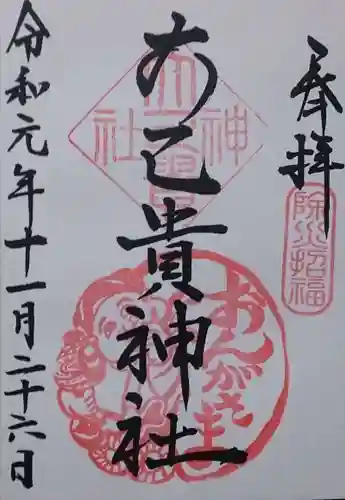 奉拝
除災招福
大己貴神社
おんがさま
神社
令和元年十一月二十六日